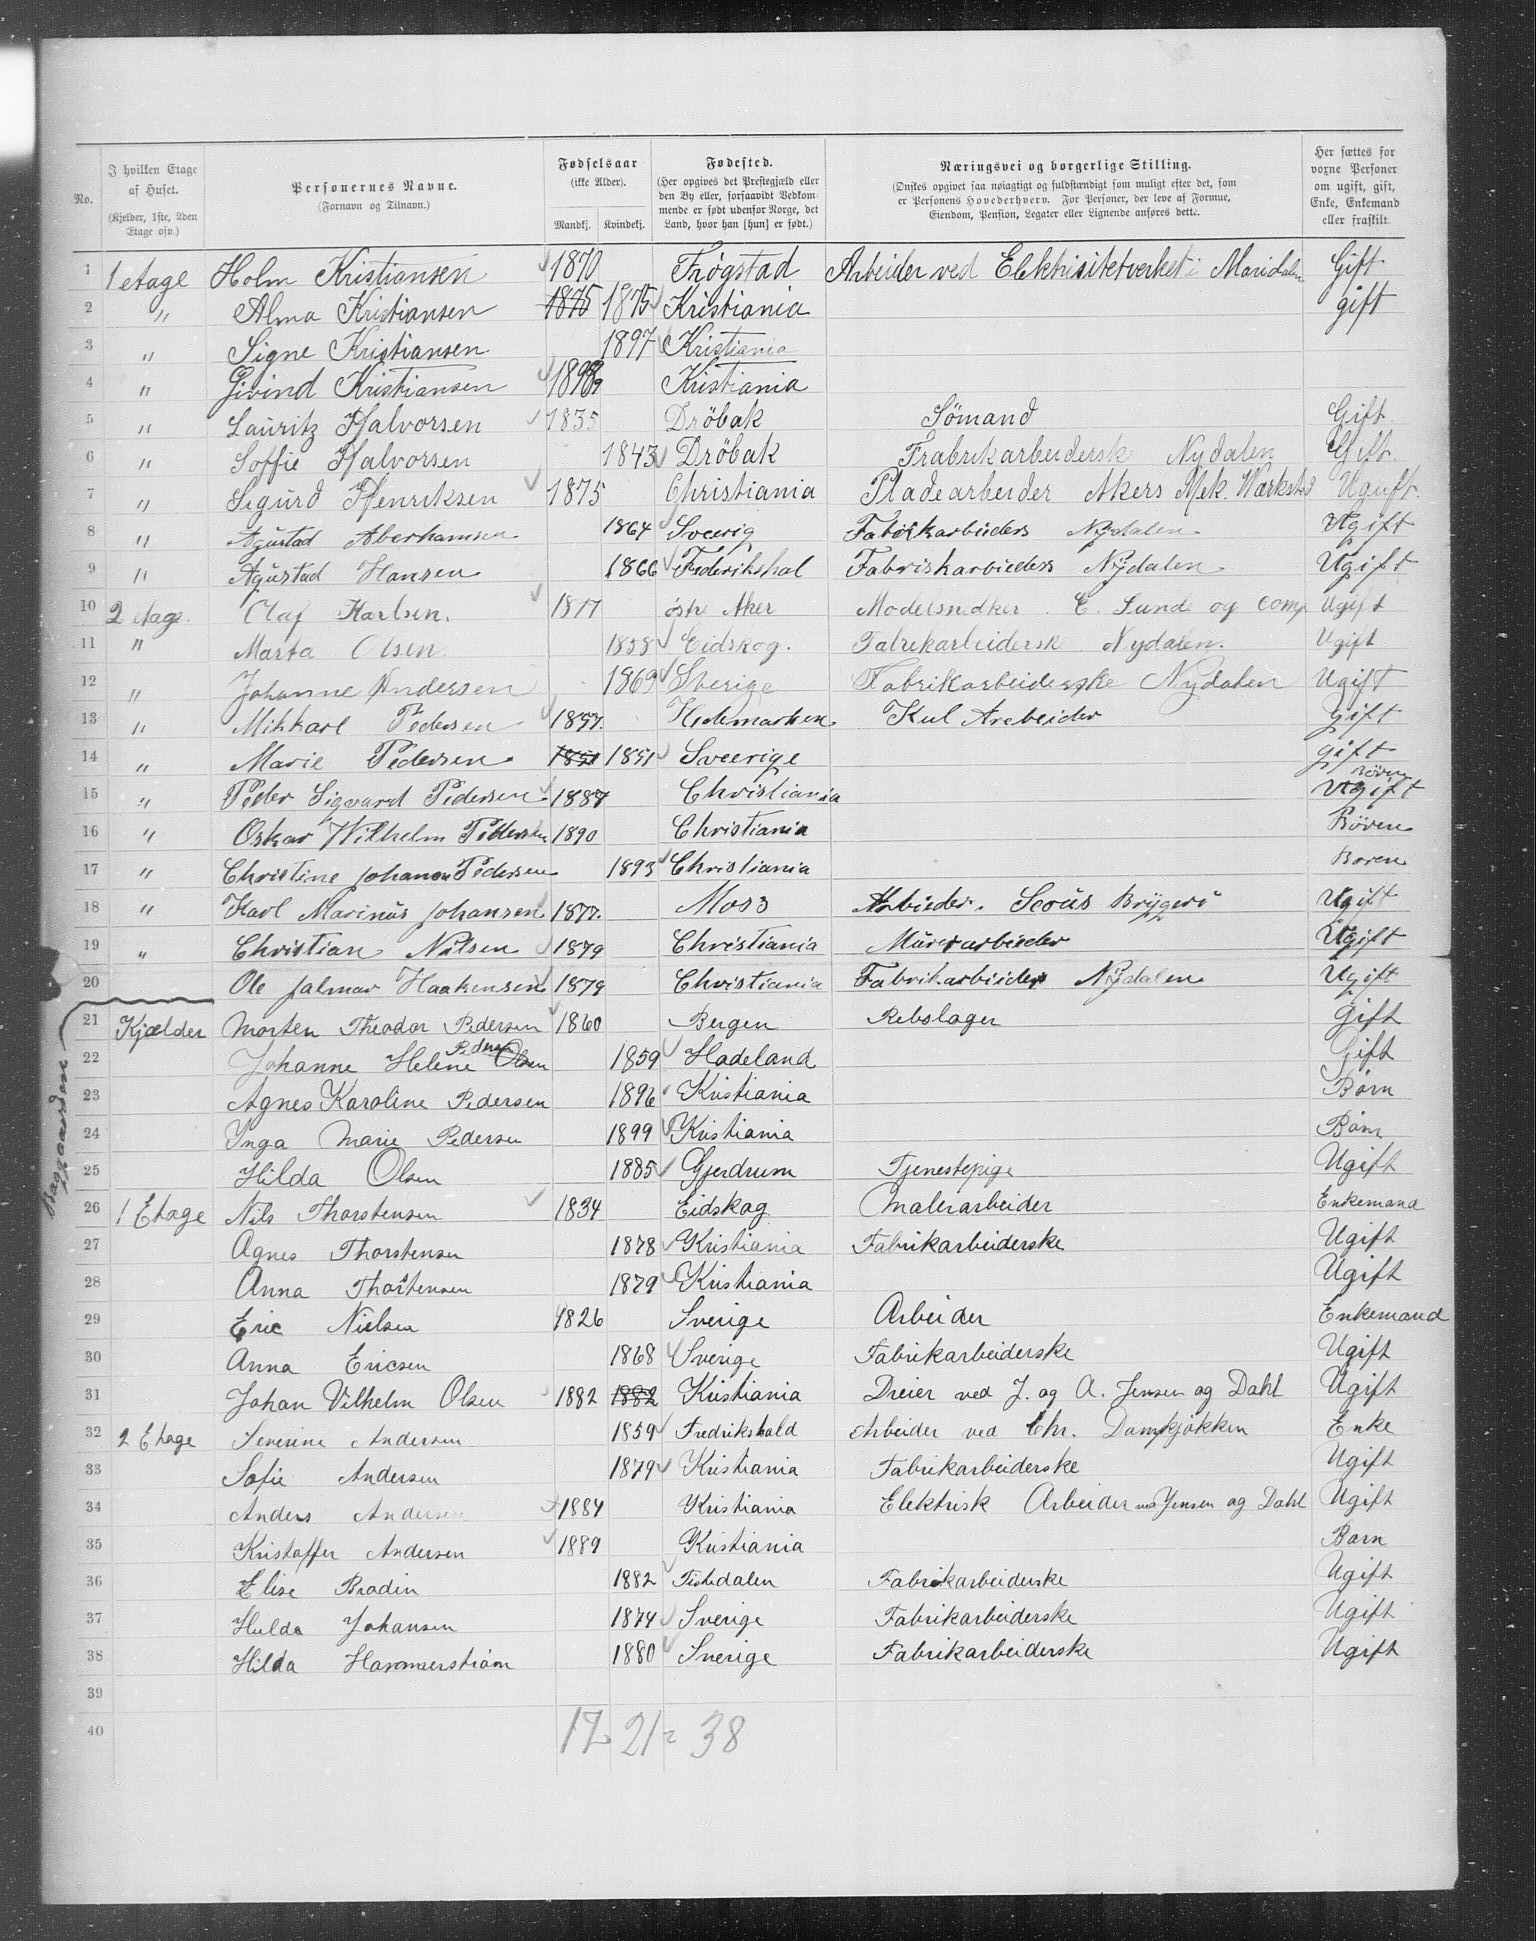 No. | I hvilken Etage af Huset. (Kjelder, 1ste, 2den Etage osv.) | Personernes Navne. (Fornavn og Tilnavn.) | Fødselsaar (ikke Alder). Mandkj. Kvindekj. | Fødested. (Her opgives det Prestegjæld eller den By eller, forsaavidt Vedkommende er født udenfor Norge, det Land, hvor han [hun] er født.) | Næringsvei og borgerlige Stilling. (Ønskes opgivet saa nøiagtigt og fuldstændigt som muligt efter det, som er Personens Hovederhverv. For Personer, der leve af Formue, Eiendom, Pension, Legater eller Lignende anføres dette.) | Her sættes for voxne Personer om ugift, gift, Enke, Enkemand eller fraskilt.
1 1 etage Holm Kristiansen 1870 Trøgstad Arbeider ved Elektrisitetverket i Maridalen Gift
2 " Alma Kristiansen 1875 1875 Kristiania gift
3 " Signe Kristiansen 1897 Kristiania
4 " Eivind Kristiansen Kristiania
5 " Lauritz Halvorsen 1835 Drøbak Sömand Gift
6 " Soffie Halvorsen 1843 Dröbak Frabrikarbeidersk Nydalen Gift.
7 " Sigurd Henriksen 1875 Christiania Pladearbeider Akers Mek. Værksted Uguft.
8 " Agustad Aberhamsen 1864 Sveerig Fabrikarbieders Nydalen Ugift
9 " Agustad Hansen 1866 Frederikshal Fabriskarbieders Nydalen Ugift
10 2 etage. Olaf Karlsen. 1877 østre Aker Modelsnedker E. Sunde og Comp Ugift
11 " Marta Olsen 1858 Eidskog. Fabrikarbeidersk Nydalen. Ugift
12 " Johanne Andersen 1869 Sverige Fabrikarbeiderske Nydalen Ugift
13 " Mikkael Pedersen 1857. Hedemarken Kul Arebeider Gift
14 " Marie Pedersen 1851 1851 Sveerige gift
15 " Peder Sigvard Pedersen 1887 Christiania Ugift Bören
16 " Oskar Wilhelm Pedersen 1890 Christiania Bören
17 " Christine Johanne Pedersen 1893 Christiania Boren
18 " Karl Marinus Johansen 1877. Moss Arbieder. Scous Bryggeri Ugift
19 " Christian Nilsen 1879 Christiania Murerarbieder Ugift
20 Ole Jalmar Haakensen 1879 Christiania Fabrikarbieder Nydalen Ugift
Baggaarden
21 Kjælder Morten Theodor Pedersen 1860 Bergen Rebslager gift
22 Johanne Helene Olsen Pedersen 1859 Hadeland Gift
23 Agnes Karoline Pedersen 1896 Kristiania Børn
24 Ynga Marie Pedersen 1899 Kristiania Børn
25 Hilda Olsen 1885 Gjerdrum Tjenestepige Ugift
26 1 Etage Nils Thorstensen 1834 Eidskog Malerarbeider Enkemand
27 Agnes Thorstensen 1878 Kristiania Fabrikarbeiderske Ugift
28 Anna Thorstensen 1879 Kristiania Ugift
29 Eric Nielsen 1826 Sverige Arbeider Enkemand
30 Anna Ericsen 1868 Sverige Fabrikarbeiderske Ugift
31 Johan Vilhelm Olsen 1882 1882 Kristiania Dreier ved J. og A. Jensen og Dahl Ugift
32 2 Etage Severine Andersen 1859 Fredrikshald Arbeider ved Chr. Dampkjøkken Enke
33 Sofie Andersen 1879 Kristiania Fabrikarbeiderske Ugift
34 Anders Andersen 1884 Kristiania Elektrisk Arbeider ved Jensen og Dahl Ugift
35 Kristoffer Andersen 1889 Kristiania Barn
36 Elise Brodin 1882 Tistedalen Fabrikarbeiderske Ugift
37 Hulda Johansen 1874 Sverige Fabrikarbeiderske Ugift
38 Hilda Hammerstrøm 1880 Sverige Fabrikarbeiderske Ugift
39
40 17 21 = 38